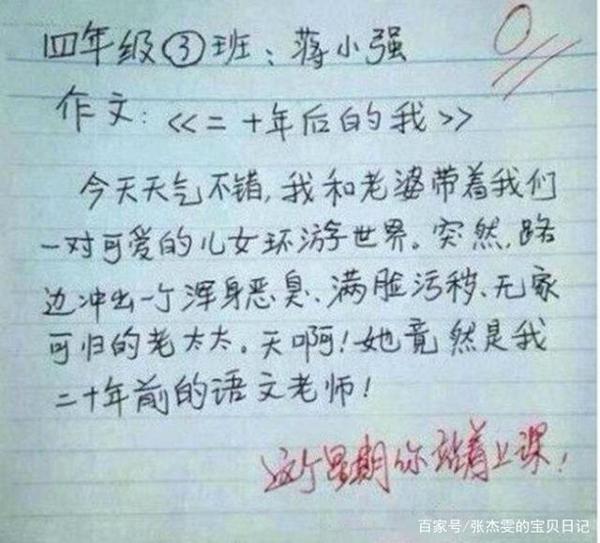 四年级③班：蒋小强
0
作文：<<二十年后的我>>
今天天气不错，我和老婆带着我们
一对可爱的儿女环游世界。突然，路
边冲出一个浑身恶臭、满脸污秽、无家
可归的老太太。天啊！她竟然是我
二十年前的语文老师！
这个星期你站着上课！
百家号/张杰雯的宝贝日记